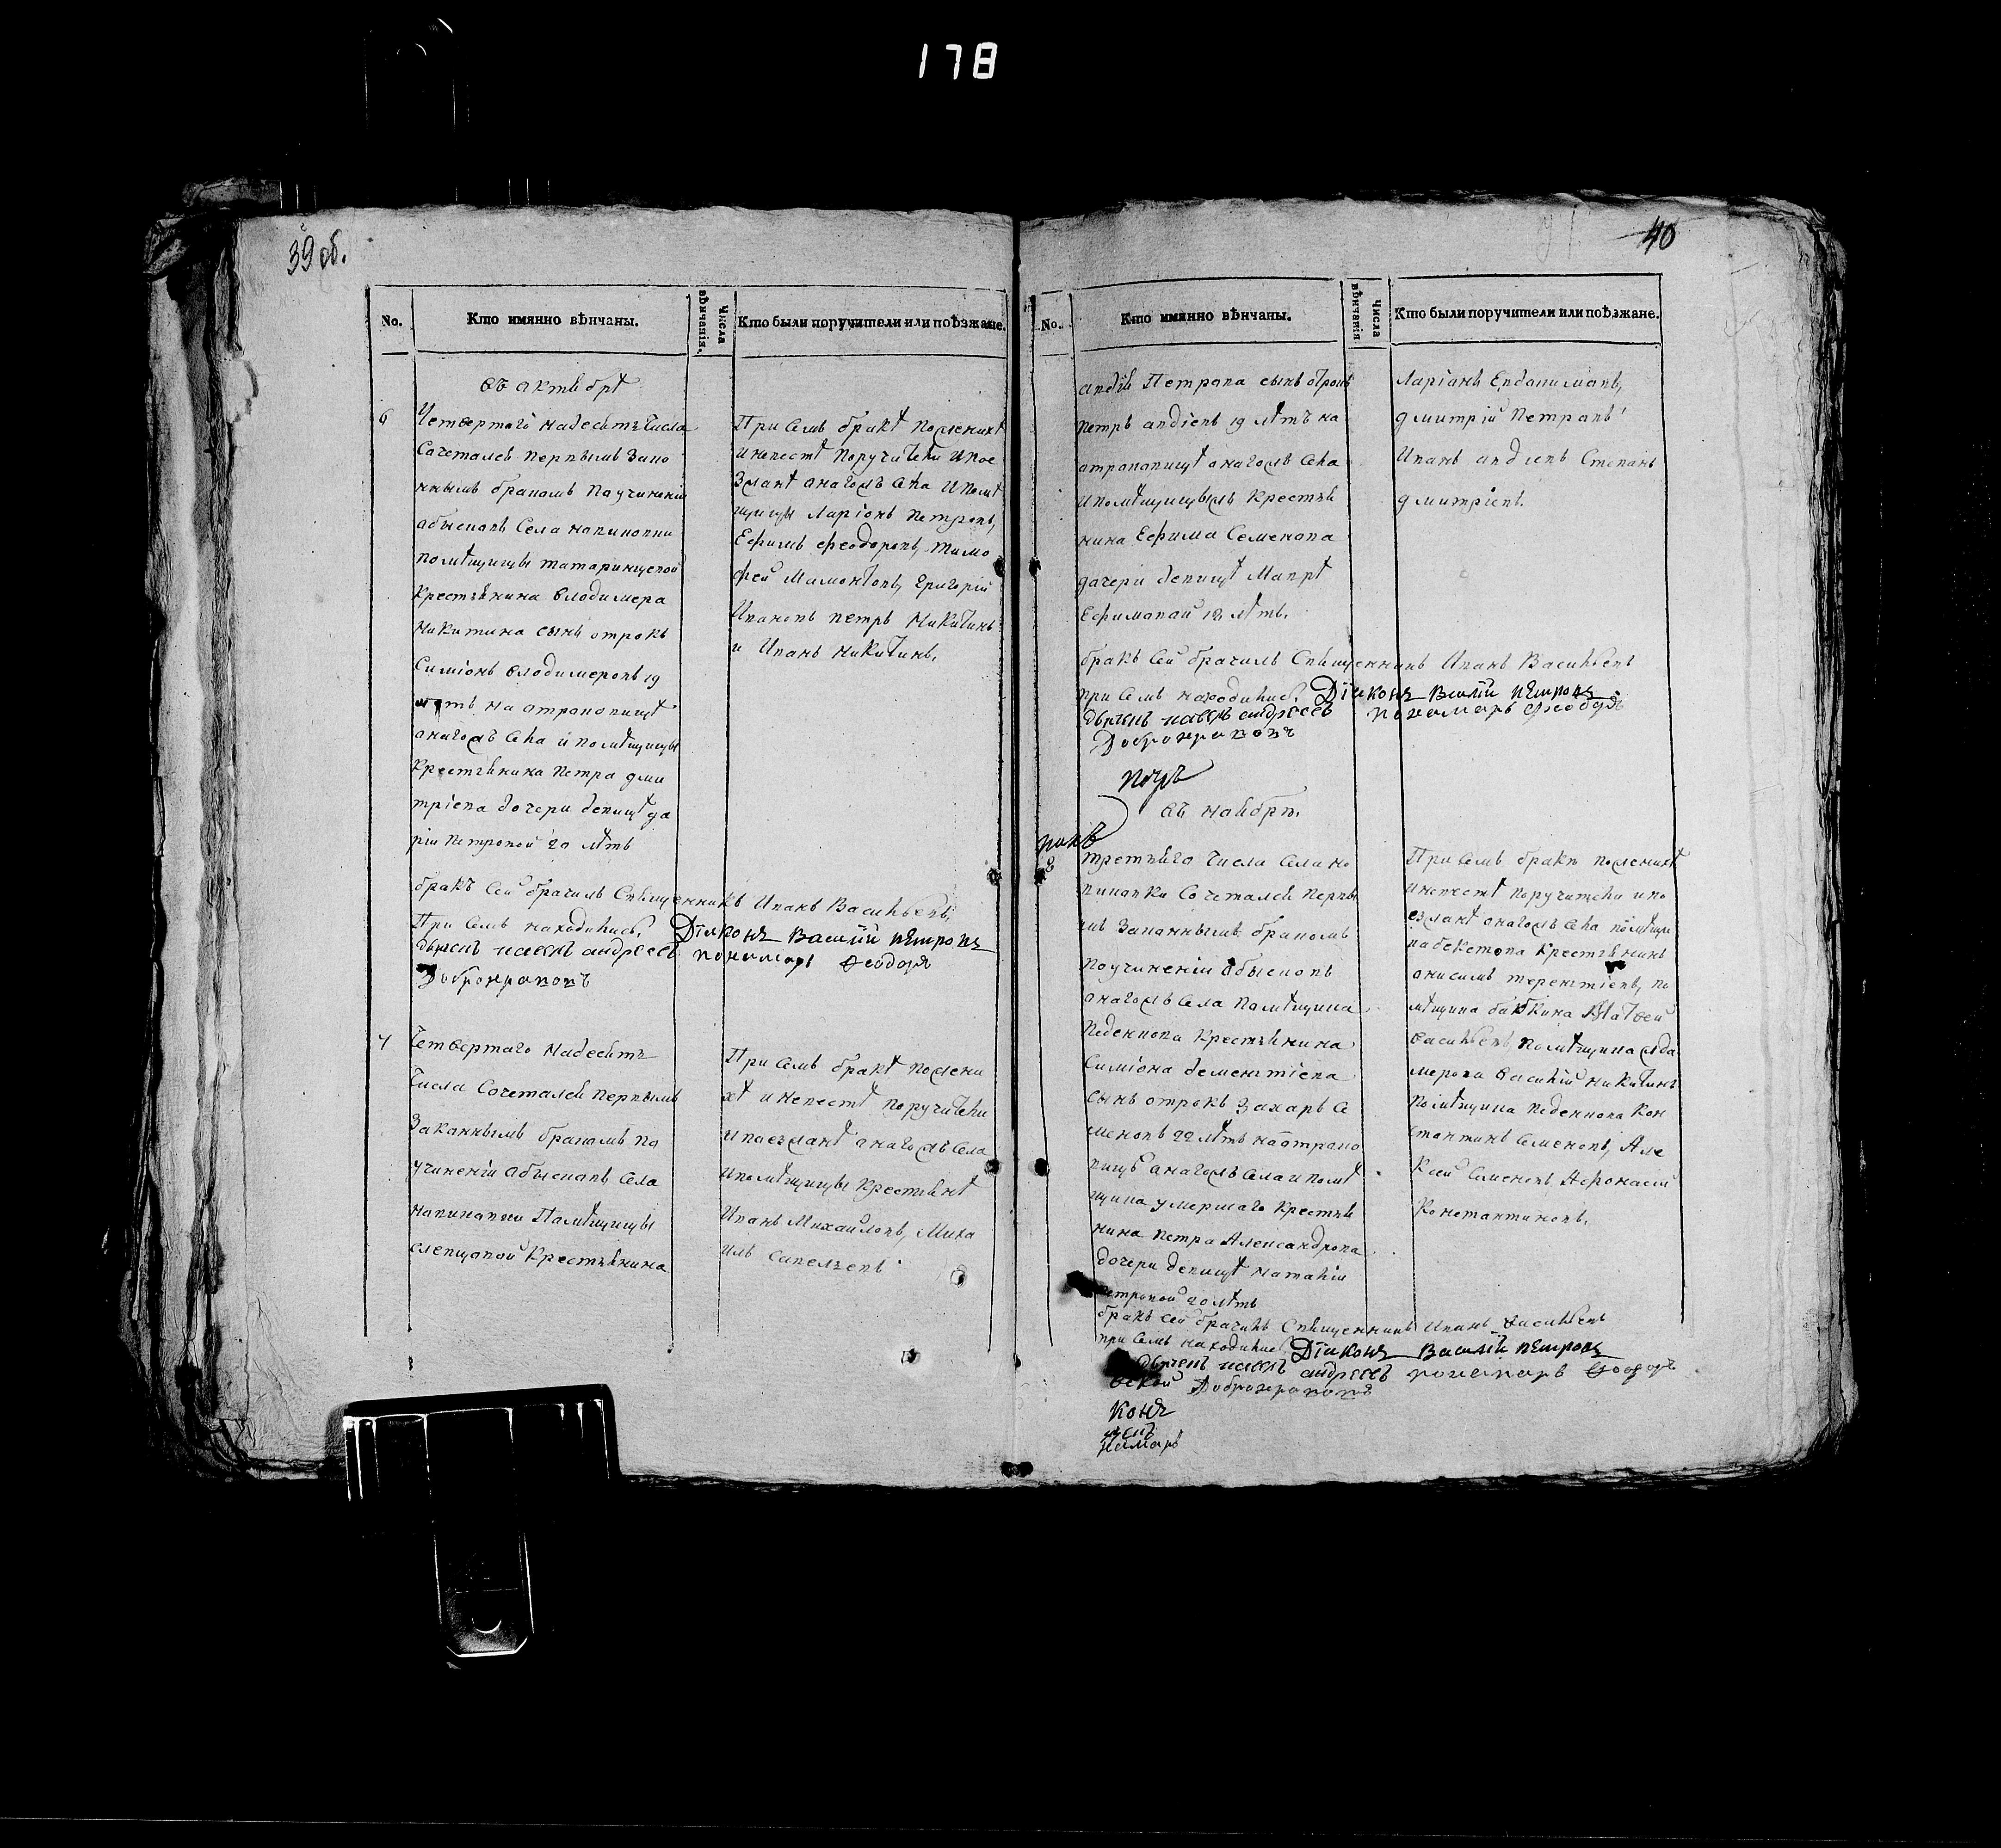 178
39 об.
No.
Кто имянно вѣнчаны.
Числа вѣнчанія.
Кто были поручители или поѣзжане.
въ октябрѣ
6
Четвертого надесять числа
сочетался первымъ зако
ннымъ бракомъ поучиненіи
обысковъ села
помѣщицы татаринцевой
крестьянина владимера
никитина сынъ отрокъ
симіонъ владимеровъ 19
лѣтъ на отроковицѣ
онагожъ села и помѣщицы
крестьянина петра дми
тріева дочери девицѣ да
ріи петровой 20 лѣтъ
При семъ бракѣ поженихѣ
иневестѣ поручители ипое
зжанѣ онагожъ села ипомѣ
щицы ларіонъ петровъ,
Ефимъ феодоровъ, тимо
фей мамонтовъ, григорій
Ивановъ петръ никитинъ
и Иванъ никитинъ,
бракъ сей брачилъ священникъ Иванъ Васильевъ,
При семъ находились Діаконъ Василій петровъ
дьячекъ павелъ андреевъ пономарь феодоръ
Добронравовъ
7
Четвертаго надесять
числа сочетался первымъ
законнымъ бракомъ по
учиненіи обысковъ села
помѣщицы
слепцовой крестьянина
При семъ бракѣ пожени
хѣ иневестѣ поручители
ипоезжанѣ онагожъ села
ипомѣщицы крестьянѣ
Иванъ Михаиловъ, Миха
илъ савельевъ
40
No.
Кто имянно вѣнчаны.
Числа вѣнчанія
Кто были поручители или поѣзжане.
авдія Петрова сынъ отрокъ
петръ авдіевъ 19 лѣтъ на
отроковицѣ онагожъ села
ипомѣщицыжъ крестья
нина Ефима Семенова
дочери девицѣ Маврѣ
Ефимовой 18 лѣтъ.
ларіонъ Евдокимовъ,
дмитрій Петровъ
Иванъ авдіевъ Степанъ
дмитріевъ.
бракъ сей брачилъ Священникъ Иванъ Васильевъ
при семъ находились Діаконъ Василій петровъ
дьячекъ павелъ андреевъ пономарь феодоръ
Добронравовъ
въ ноябрѣ.
8
третьяго числа села но
сочетался первы
мъ законнымъ бракомъ
поучиненіи обысковъ
онагожъ села помѣщика
крестьянина
симіона дементіева
сынъ отрокъ захаръ се
меновъ 22 лѣтъ на отроко
вицѣ онагожъ села и помѣ
щика умершаго крестья
нина петра Александрова
дочери девицѣ наталіи
петровой 20 лѣтъ
При семъ бракѣ поженихѣ
иневестѣ поручители ипо
езжанѣ онагожъ села помѣщи
ка бекетова крестьянинъ
онисимъ терентіевъ, по
мѣщика бабкина Матвей
васильевъ помѣщика
василій никитинъ
помѣщика кон
стантинъ семеновъ, Але
ксей семеновъ, Афонасей
Константиновъ.
бракъ сей брачилъ Священникъ Иванъ Васильевъ
при семъ находились Діаконъ Василій петровъ
дьячекъ павелъ андреевъ пономарь феодоръ
Добронравовъ